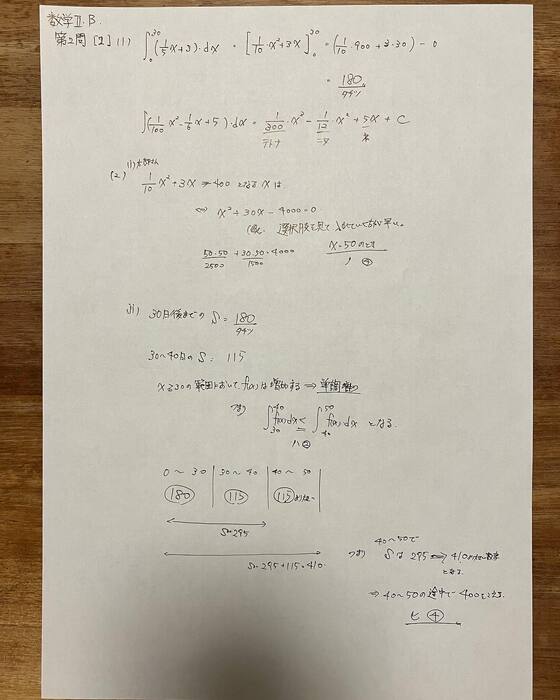 数学Ⅱ.B
第2問 [2] (1) ∫₀³⁰ (1/5 x + 3)・dx = [1/10・x² + 3x]₀³⁰ = (1/10・900 + 3・30) − 0
= 180
タチツ
∫(1/100 x² − 1/6 x + 5)・dx = 1/300・x³ − 1/12・x² + 5x + C
テトナ ニヌ ネ
(2) (i) 太郎さん
1/10 x² + 3x = 400 となる x は
⇔ x² + 30x − 4000 = 0
選択肢を見て
50・50 + 30・50 = 4000
2500 1500
x = 50 のとき
ノ ④
ii) 30日後までの S = 180
タチツ
30〜40日の S = 115
x≧30の範囲において f(x)は増加する ⇒ 単調増加
つまり ∫₃₀⁴⁰ f(x)dx < ∫₄₀⁵⁰ f(x)dx となる.
ハ ②
0 〜 30 | 30 〜 40 | 40 〜 50
180 | 115 | 115
S=295
S= 295+115=410.
つまり 40〜50で
Sは 295 ⇒ 410
となる.
⇒ 40〜50の途中で 400をこえる.
ヒ ④